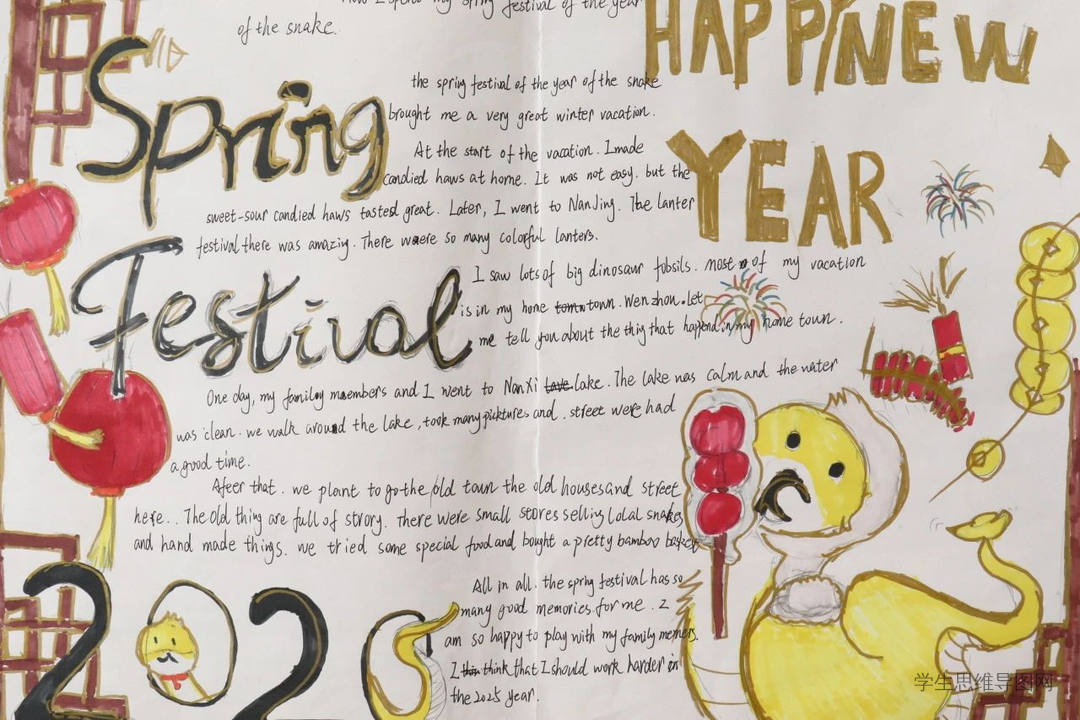 How I spend my spring festival of the year
of the snake.
HAPPY NEW
YEAR
Spring
Festival
the spring festival of the year of the snake
brought me a very great winter vacation.
At the start of the vacation. I made
candied haws at home. It was not easy. but the
sweet-sour candied haws tasted great. Later, I went to NanJing. The lanter
festival there was amazing. There were so many colorful lanters.
I saw lots of big dinosaur fobsils. most of my vacation
is in my home town. Wen zhou. let
me tell you about the thig that happend in my home town.
One day, my family maembers and I went to NanXi lake. The lake was calm and the water
was clean. we walk around the lake, took many picktures and. street were had
a good time.
Afeer that. we plant to go the old town the old houses and street
here.. The old thing are full of strory. there were small stores sellig lolal snakes
and hand made things. we tried some special food and bought a pretty bamboo basket
All in all. the sprig festival has so
many good memories for me. I
am so happy to play with my family memers.
I think that I should work harder in
the 2025 year.
202
学生思维导图网